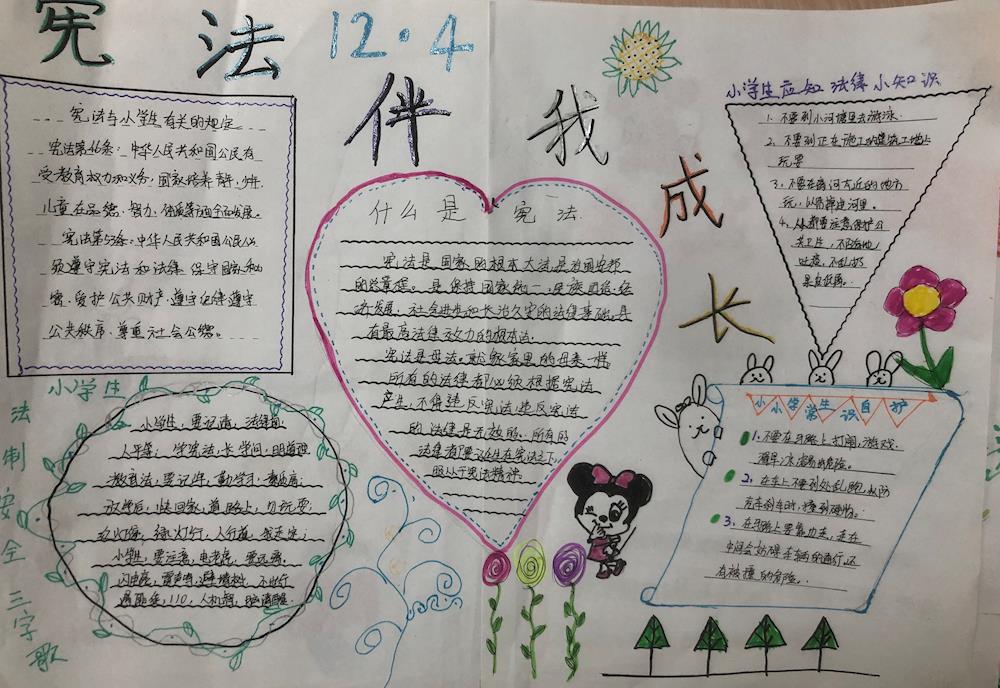 宪法 12·4
伴我成长
宪法与小学生有关的规定
宪法第46条：中华人民共和国公民有
受教育权力和义务，国家培养青年、少年、
儿童在品德、智力、体质等方面全面发展。
宪法第53条：中华人民共和国公民必
须遵守宪法和法律 保守国家秘
密，爱护公共财产，遵守纪律遵守
公共秩序，尊重社会公德。
什么是宪法
宪法是国家的根本大法，是治国安邦
的总章程。是保持国家统一、民族团结、经
济发展、社会进步和长治久安的法律基础，具
有最高法律效力的根本法。
宪法是母法，就像家里的母亲一样
所有的法律都必须根据宪法
产生，不得违反宪法，违反宪法
的法律是无效的。所有的
法律都要
宪法精神。
小学生应知法律小知识
1、不要到小河塘里去游泳.
2、不要到正在施工的建筑工地上
玩耍
3、不要在离河太近的地方
玩，以防掉进河里。
4、从都要注意保护公
共卫生，不随地
吐痰，不乱扔
果皮纸屑。
小学生
法制安全三字歌
小学生，要记清，法律面，
人平等；学宪法，长学问，明道理
教育法，要记牢，勤学习，素质高；
放学后，快回家，道路上，勿玩耍；
红灯停，绿灯行，人行道，我走定；
小学生，要注意，电老虎，要远离。
闪电
遇
小小学生自护
常识
1、不要在马路上打闹，游戏.
滑旱冰.容易出危险。
2、在车上不要到处乱跑，以防
在车刹车时，撞到硬物。
3、在马路上要靠边走，走在
中间会妨碍车辆的通行，还
有被撞的危险。